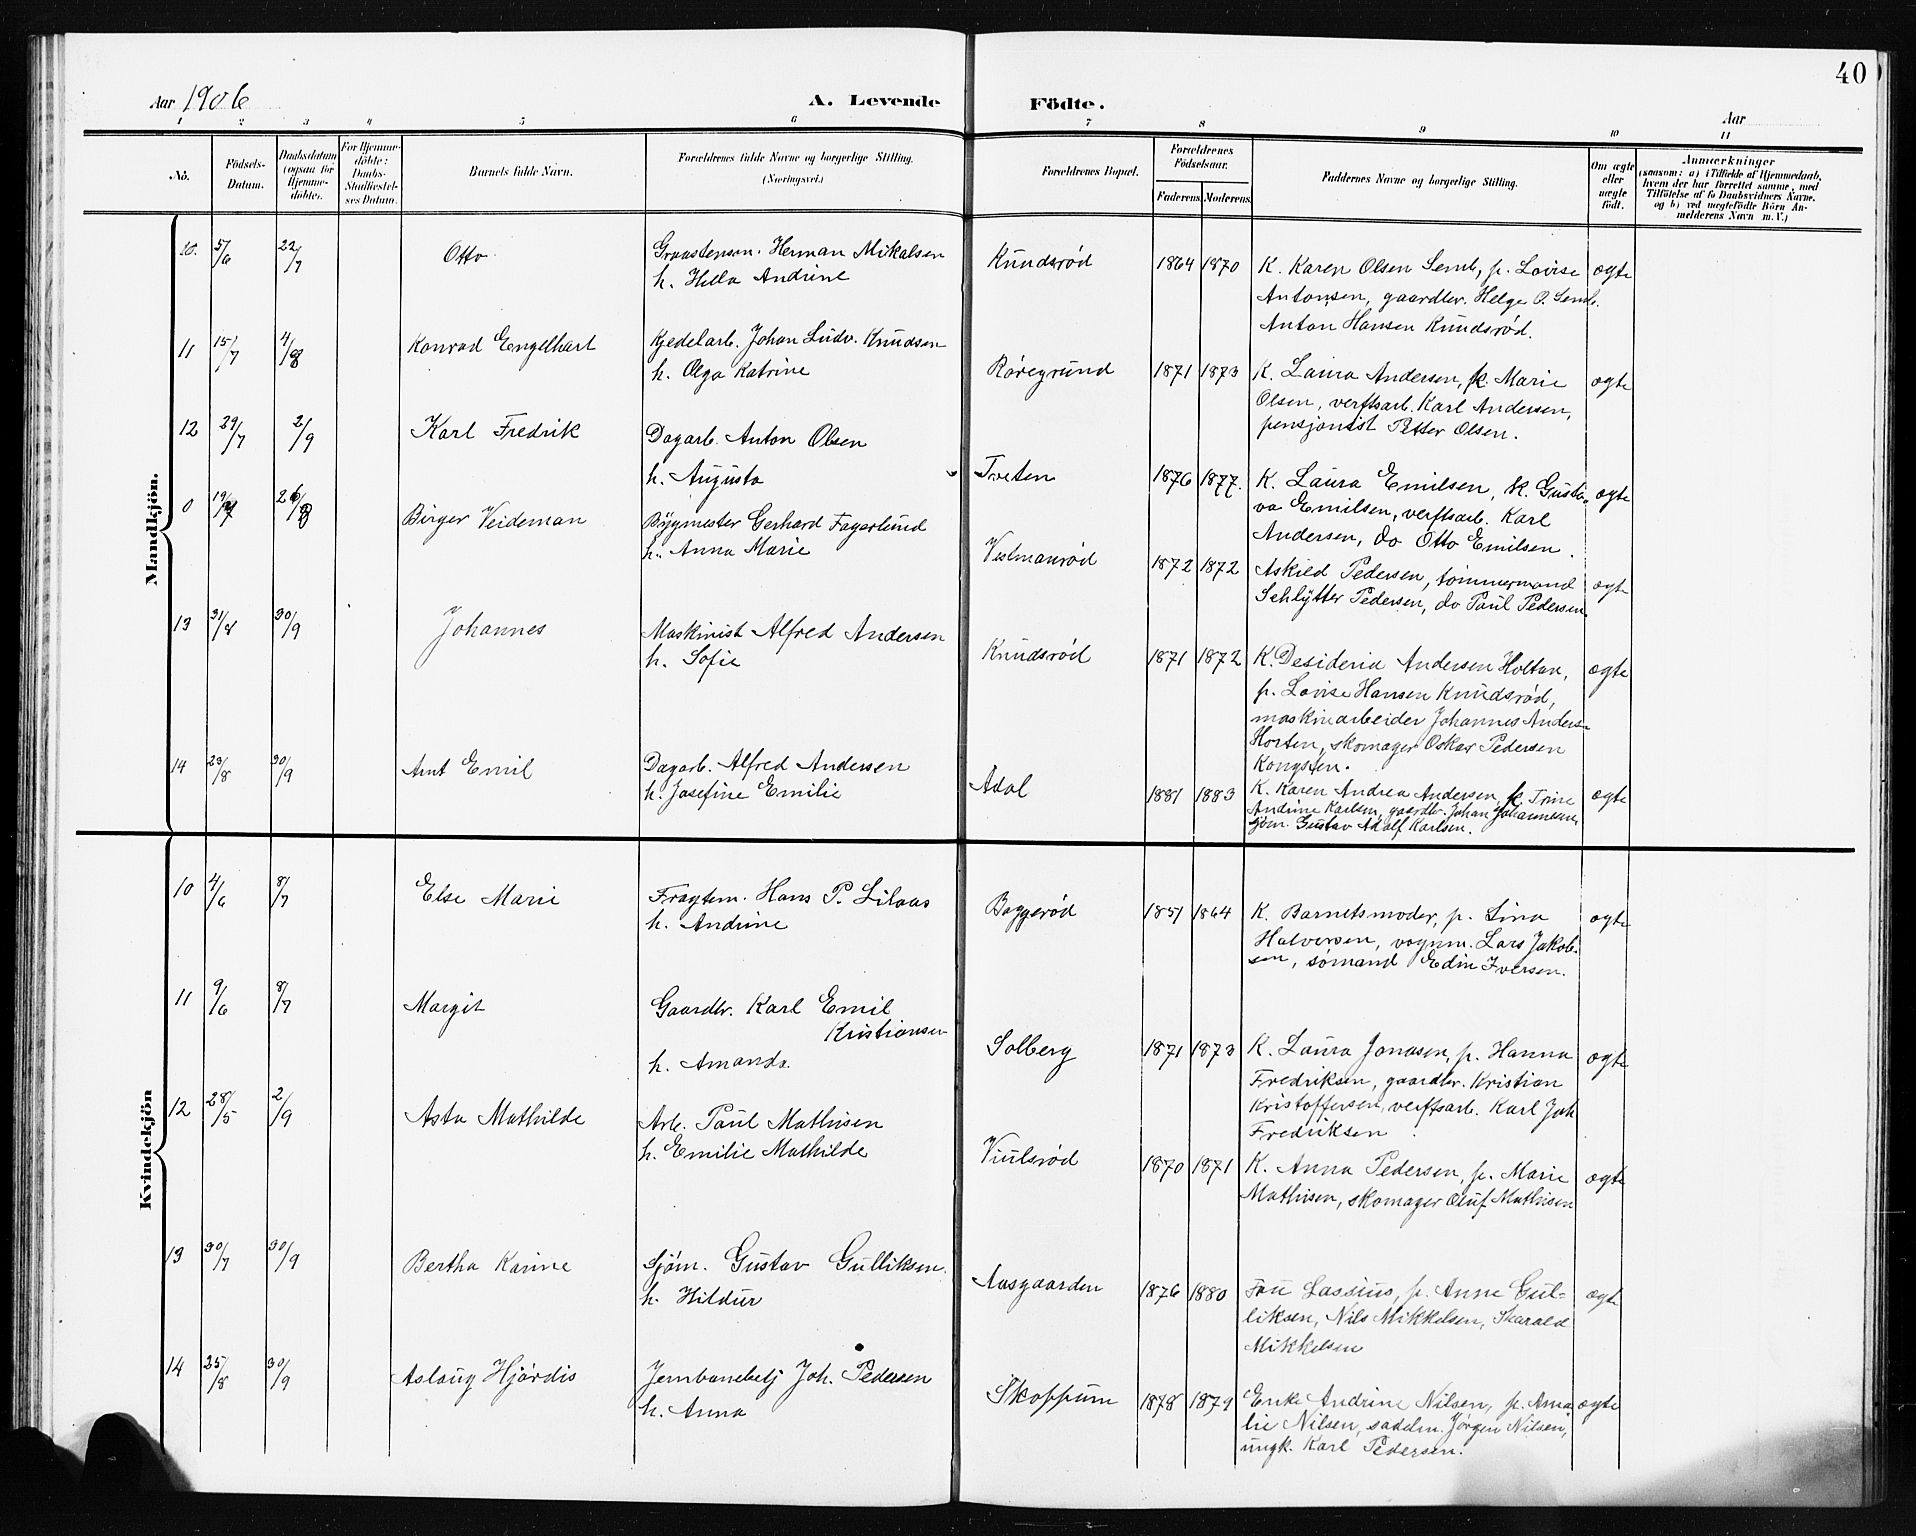 40
Aar 1906
A. Levende Födte.
Aar
1 2 3 4 5 6 7 8 9 10 11
No.
Födsels-
Datum.
Daabsdatum
(ogsaa for
Hjemme-
döbte).
For Hjemme-
döbte:
Daabs-
Stadfæstel-
ses Datum.
Barnets fulde Navn.
Forældrenes fulde Navne og borgerlige Stilling.
(Næringsvei.)
Forældrenes Bopæl.
Forældrenes
Födselsaar.
Faderens Moderens
Faddernes Navne og borgerlige Stilling.
Om ægte
eller
uægte
født.
Anmærkninger
(saasom: a) i Tilfælde af Hjemmedaab,
hvem der har forrettet samme, med
Tilføielse af to Daabsvidners Navne,
og b) ved uægtefödte Börn An-
melderens Navn m. V.)
Mandkjön.
10. 5/6 22/7 Otto Graastensm. Herman Mikalsen
h. Hella Andrine
Knudsrød 1864 1870 K. Karen Olsen Semb, p. Lovise ægte
Antonsen, gaardbr. Helge O. Semb.
Anton Hansen Knudsrød.
11 15/7 4/8 Konrad Engelhart Kjedelarb. Johan Ludv. Knudsen
h. Olga Katrine
Røregrund 1871 1873 K. Laura Andersen, k. Marie ægte
Olsen, verftsarb. Karl Andersen,
pensjonist Petter Olsen.
12 29/7 2/9 Karl Fredrik Dagarb. Anton Olsen
h. Augusta
Tveten 1876 1877. K. Laura Emilsen, k. Gusta- ægte
va Emilsen, verftsarb. Karl
Andersen, do Otto Emilsen.
0 19/7 26/8 Birger Veideman Bygmester Gerhard Fagerlund
h. Anna Marie
Vestmanrød 1872 1872 Askild Pedersen, tømmermand ægte
Schlytter Pedersen, do Paul Pedersen.
13 31/8 30/9 Johannes Maskinist Alfred Andersen
h. Sofie
Knudsrød 1871 1872 K. Desideria Andersen Holtan, ægte
p. Lovise Hansen Knudsrød,
maskinarbeider Johannes Anders-
Horten, skomager Oskar Pedersen
Kongsten.
14 23/8 30/9 Arnt Emil Dagarb. Alfred Andersen
h. Josefine Emilie
Adal 1881 1883 K. Karen Andrea Andersen, k. Trine ægte
Andrine Karlsen, gaardbr. Johan Johannesen,
sjøm. Gustav Adolf Karlsen.
Kvindekjön
10 4/6 8/7 Else Marie Fragtem. Hans P. LiLaas
h. Andrine
Baggerød 1851 1864 K. Barnetsmoder, p. Lina ægte
Halversen, vognm. Lars Jakob-
sen, sømand Edin Iversen.
11 9/6 8/7 Margit Gaardbr. Karl Emil
Kristiansen
h. Amanda.
Solberg 1871 1873 K. Laura Jonasen, p. Hanna ægte
Fredriksen, gaardbr. Kristian
Kristoffersen, verftsarb. Karl Joh
Fredriksen.
12 28/5 2/9 Asta Mathilde Arb. Paul Mathisen
h. Emilie Mathilde
Viulsrød 1870 1871 K. Anna Pedersen, p. Marie ægte
Mathisen, skomager Oluf Mathisen
13 30/7 30/9 Bertha Karine Sjøm. Gustav Gulliksen.
h. Hildur
Aasgaarden 1876 1880 Fru Lassius, p. Anne Gul- ægte
liksen, Nils Mikkelsen, Harald
Mikkelsen
14 25/8 30/9 Aslaug Hjördis Jernbanebetj Joh. Pedersen
h. Anna
Skoppum 1878 1879 Enke Andrine Nilsen, p. Ama ægte
lie Nilsen, saddm. Jørgen Nilsen,
ungk. Karl Pedersen.